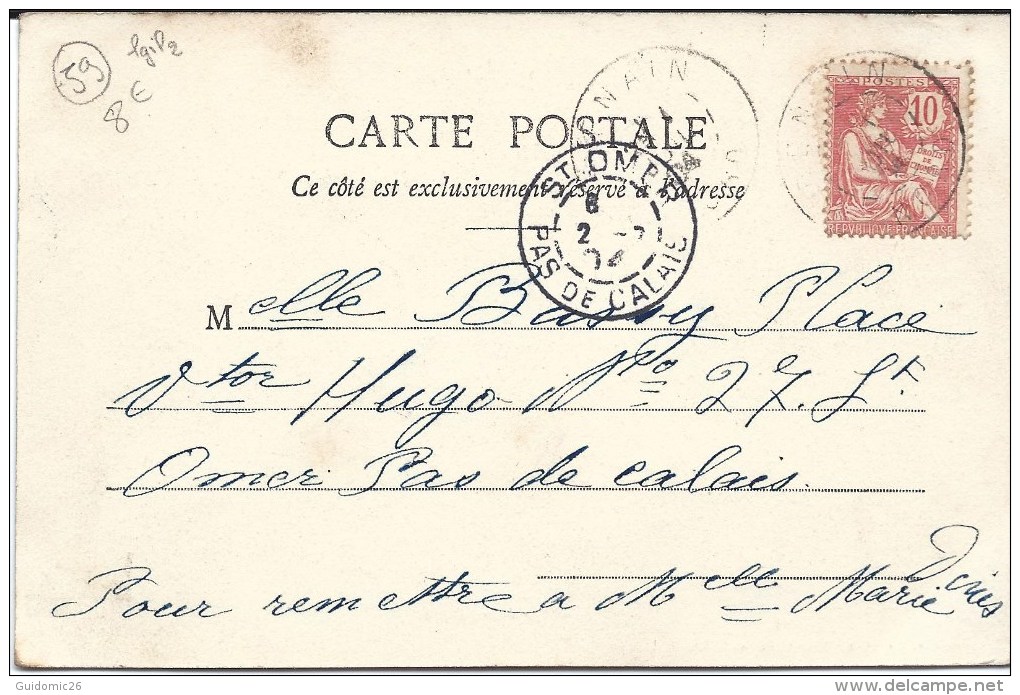 59
8 €
CARTE POSTALE
Ce côté est exclusivement réservé à l'adresse
POSTES
10
DROITS DE L'HOMME
REPVBLIQVE FRANÇAISE
ST OMER
2
04
PAS DE CALAIS
Melle Bassy Place
Vtor Hugo No 27. St
Omer Pas de Calais.
Pour remettre à Melle Marie
Guidomic26
delcampe.net